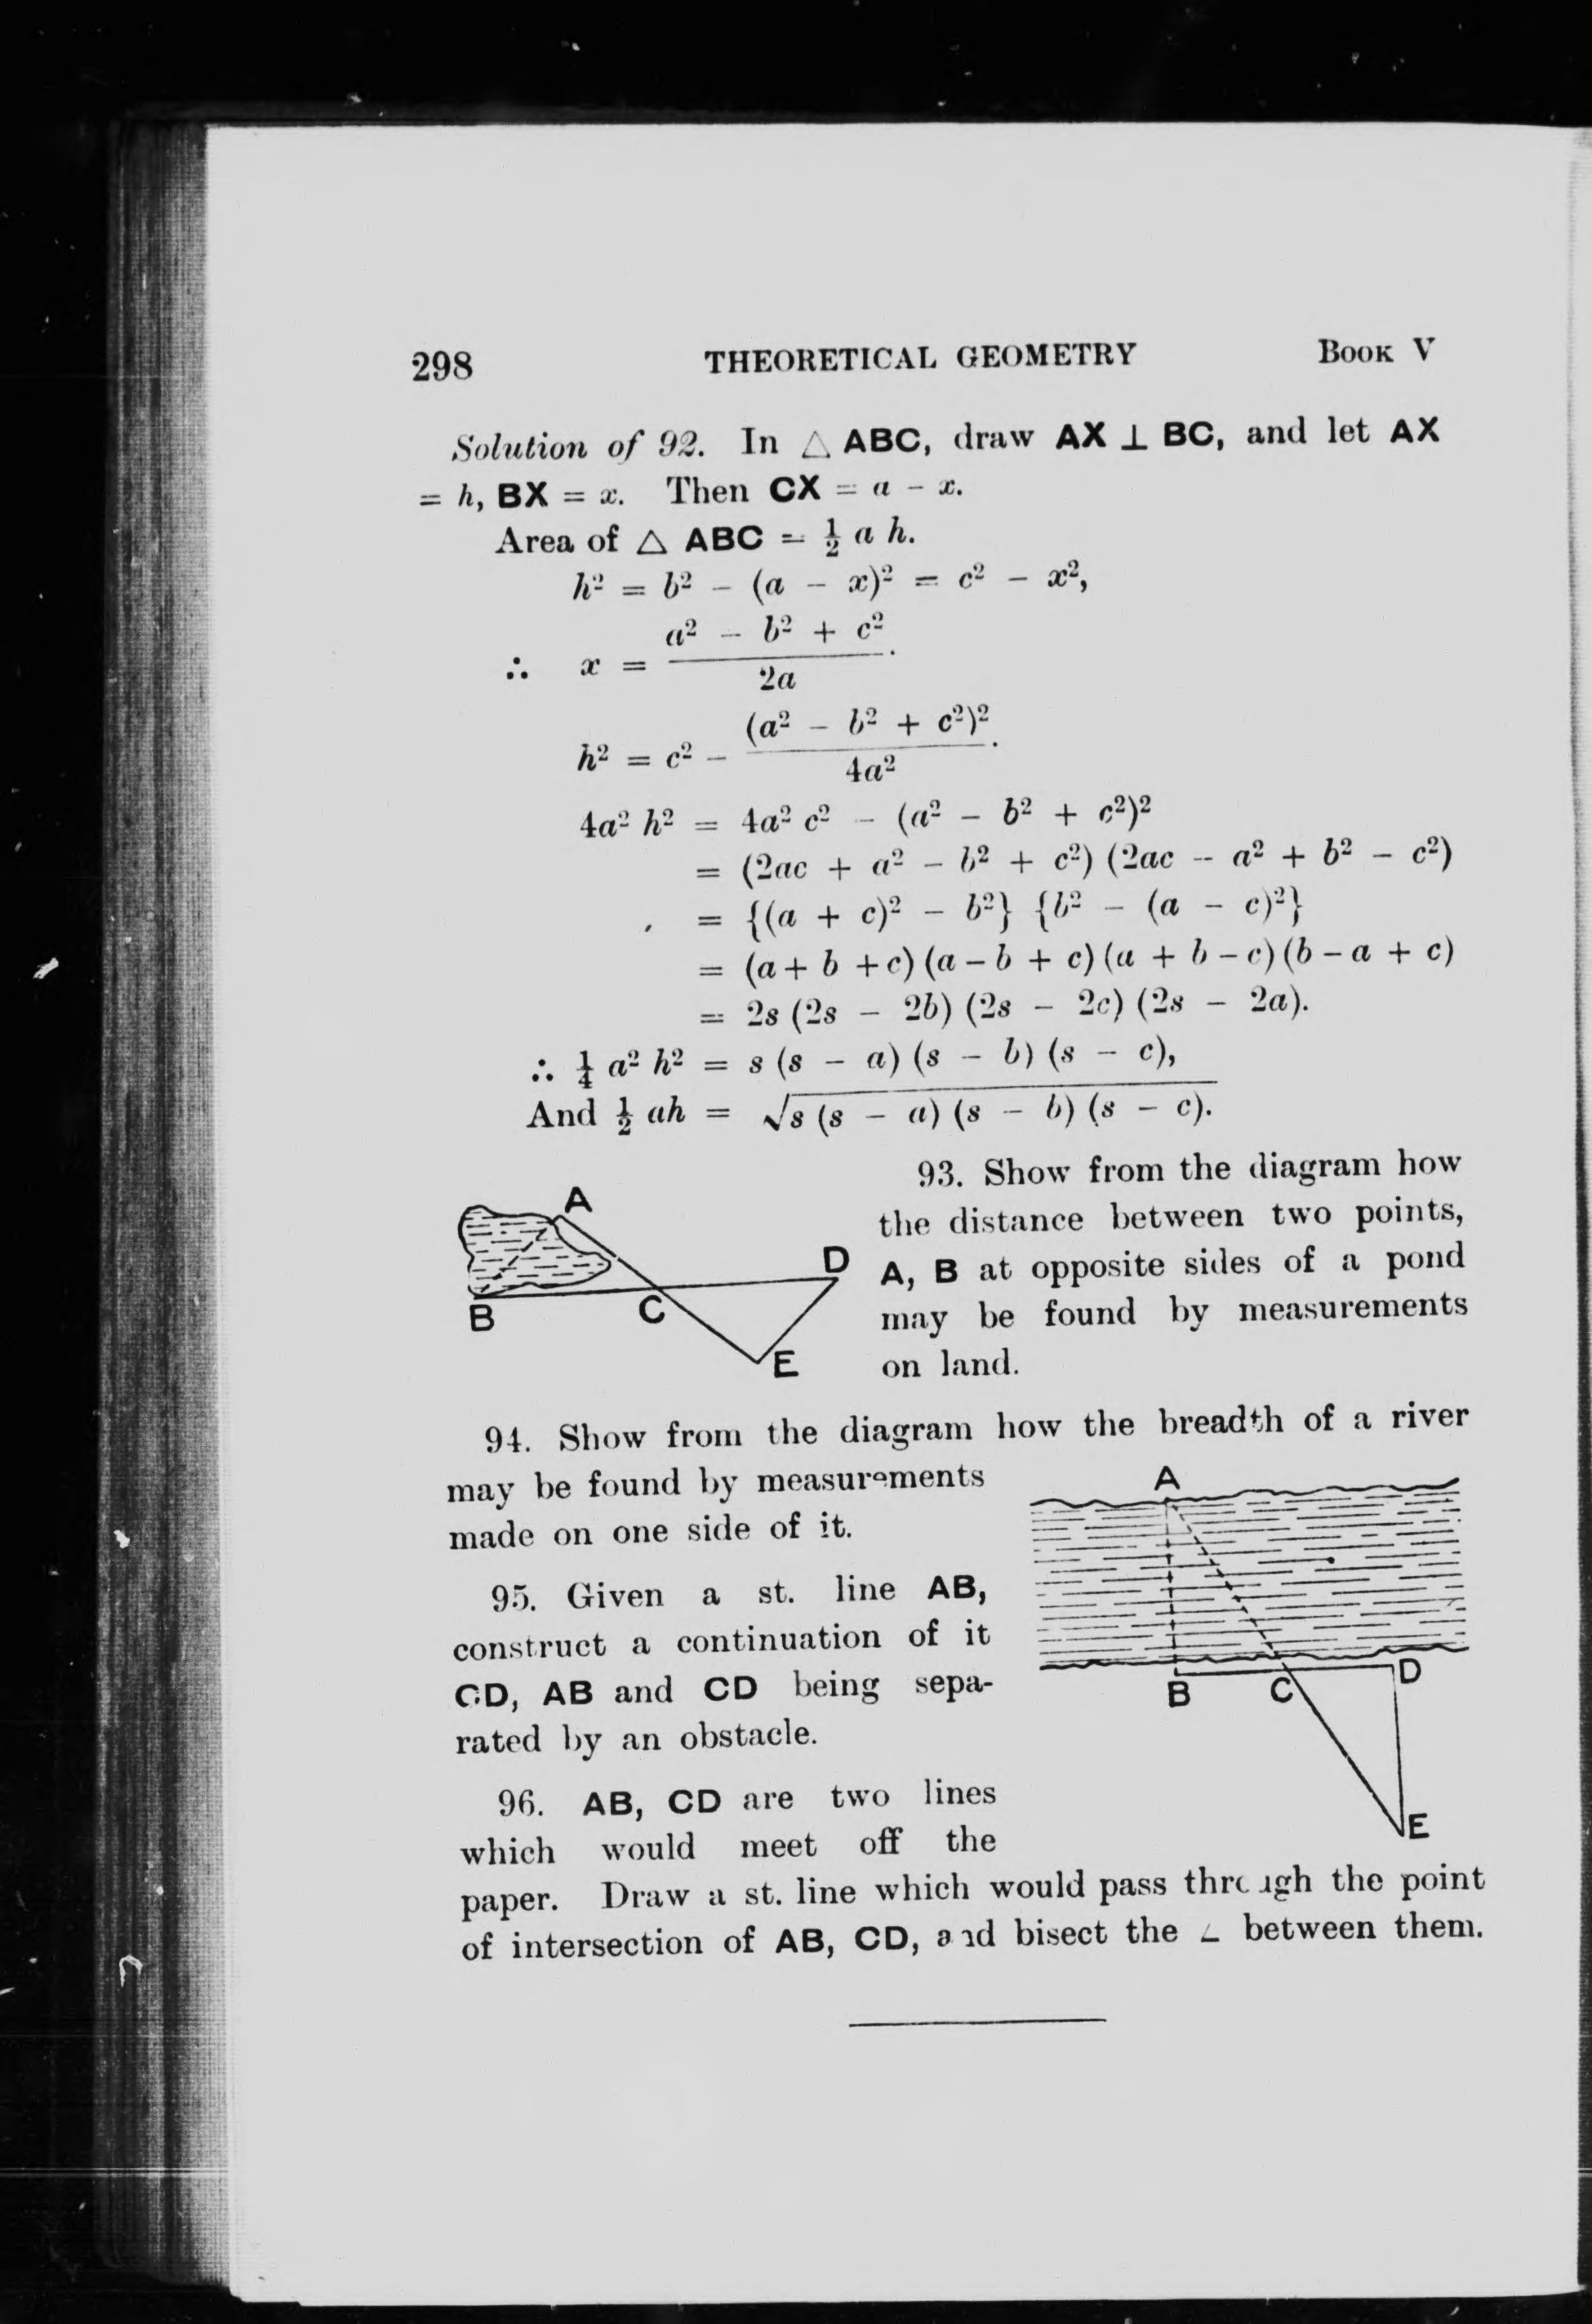 298 THEORETICAL GEOMETRY BOOK V
Solution of 92. In △ ABC, draw AX ⊥ BC, and let AX
= h, BX = x. Then CX = a − x.
Area of △ ABC = ½ a h.
h² = b² − (a − x)² = c² − x²,
∴ x = (a² − b² + c²) / 2a.
h² = c² − (a² − b² + c²)² / 4a².
4a² h² = 4a² c² − (a² − b² + c²)²
= (2ac + a² − b² + c²) (2ac − a² + b² − c²)
= {(a + c)² − b²} {b² − (a − c)²}
= (a + b + c) (a − b + c) (a + b − c) (b − a + c)
= 2s (2s − 2b) (2s − 2c) (2s − 2a).
∴ ¼ a² h² = s (s − a) (s − b) (s − c),
And ½ ah = √s (s − a) (s − b) (s − c).
93. Show from the diagram how
the distance between two points,
A, B at opposite sides of a pond
may be found by measurements
on land.
A
D
B
C
E
94. Show from the diagram how the breadth of a river
may be found by measurements
made on one side of it.
95. Given a st. line AB,
construct a continuation of it
CD, AB and CD being sepa-
rated by an obstacle.
96. AB, CD are two lines
which would meet off the
paper. Draw a st. line which would pass through the point
of intersection of AB, CD, and bisect the ∠ between them.
A
B
C
D
E